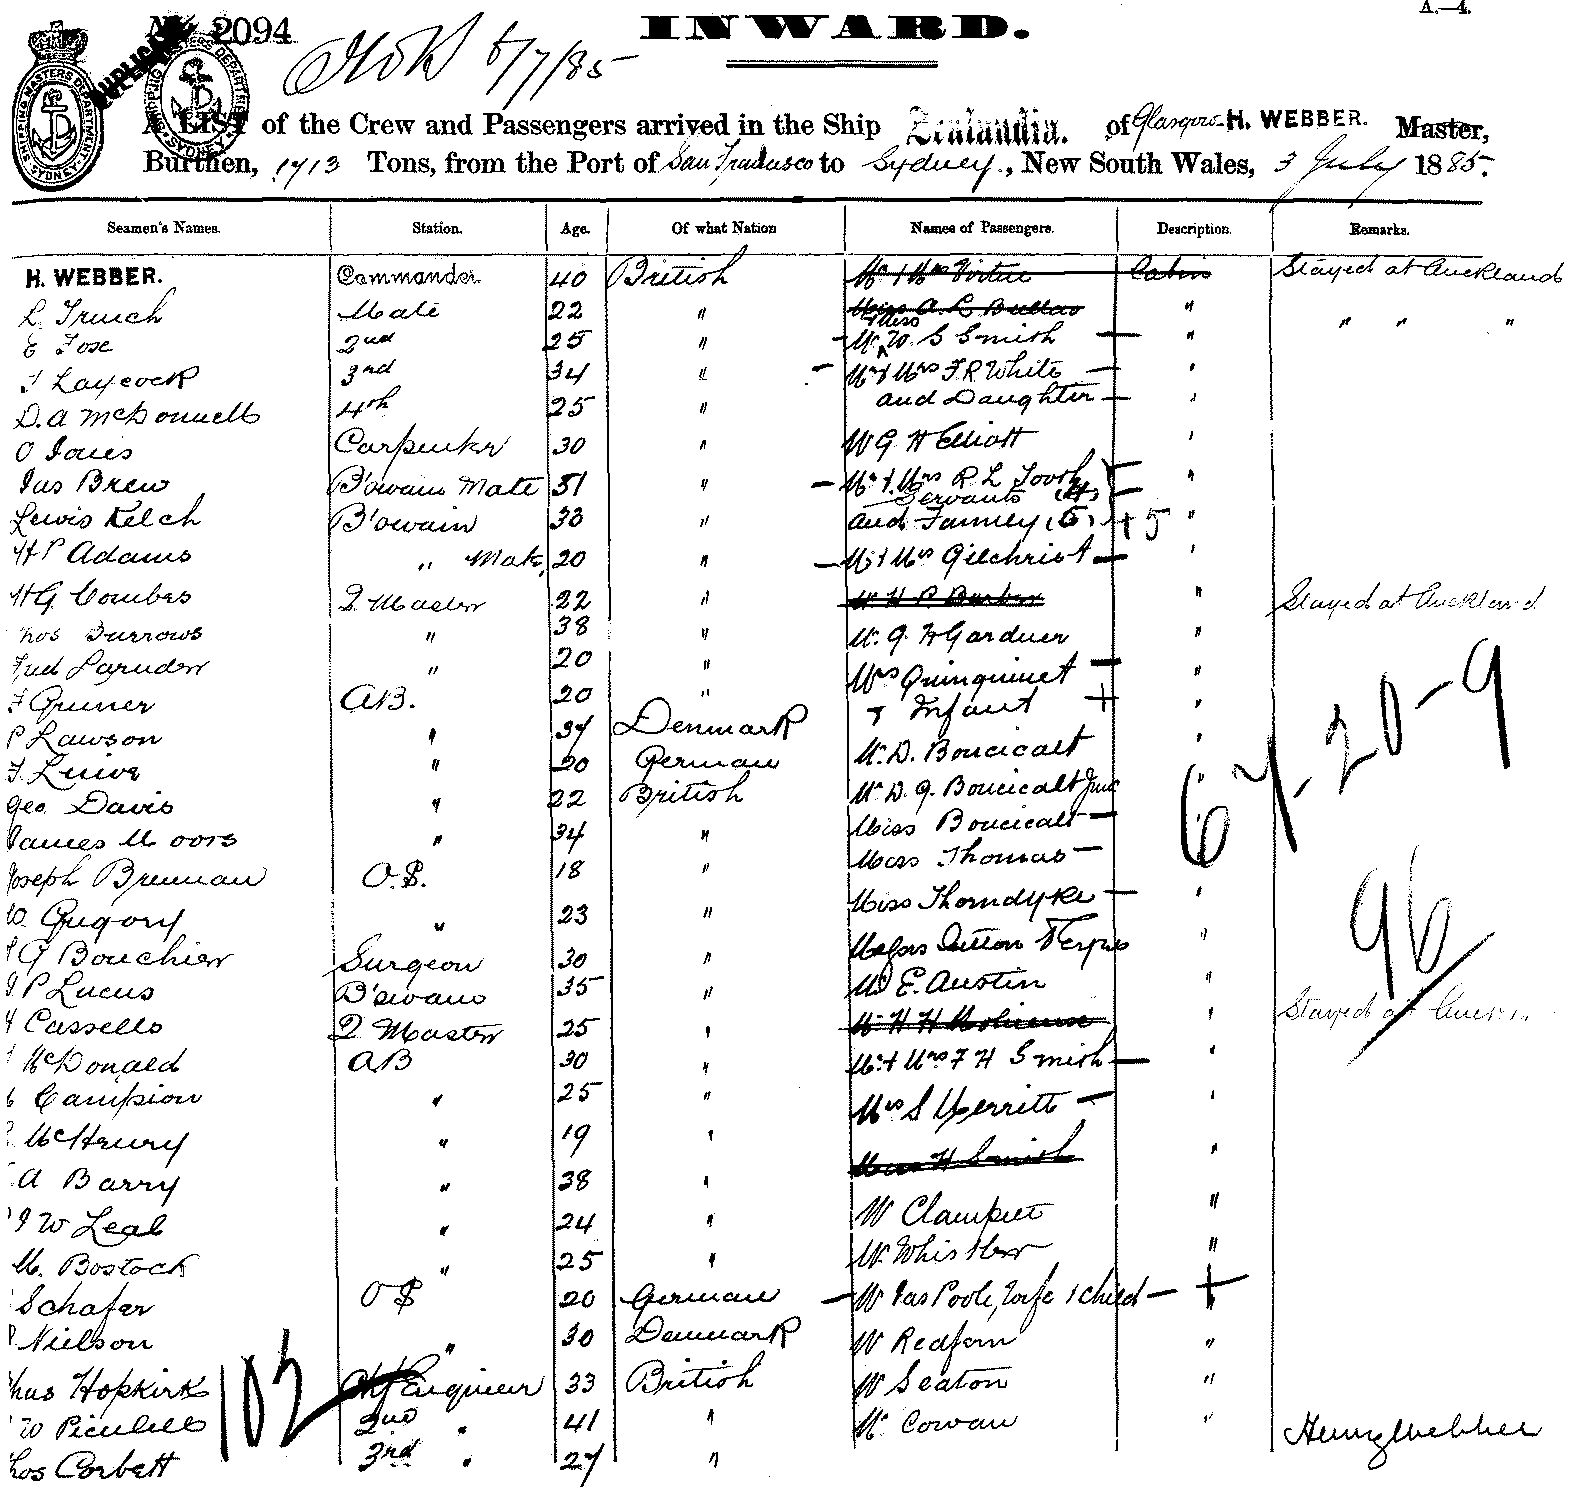 A.—4.
No. 2094 INWARD.
DUPLICATE
SHIPPING MASTERS DEPARTMENT SYDNEY
SHIPPING MASTERS DEPARTMENT SYDNEY
6/7/85
A LIST of the Crew and Passengers arrived in the Ship Zealandia. of Glasgow H. WEBBER. Master,
Burthen, 1713 Tons, from the Port of San Francisco to Sydney, New South Wales, 3 July 1885.
Seamen's Names. Station. Age. Of what Nation Names of Passengers. Description. Remarks.
H. WEBBER. Commander 40 British Mr & Mrs Virtue Cabin Stayed at Auckland
L. French Mate 22 " Miss A. L. " " " "
& Miss
E Fose 2nd 25 " Mr W. S Smith "
J Laycock 3rd 34 " Mr & Mrs F. R. White "
D. A McDonnell 4th 25 " and Daughter "
O Jones Carpenter 30 " W G H Elliott "
Jas Brew B'swains Mate 51 " Mr & Mrs R L Tooth "
Servants (4)
Lewis Kelch B'swain 33 " and Family (5) + 5 "
H P Adams " Mate 20 " Mr & Mrs Gilchrist "
H G Combes Q Master 22 " Mr H P Barber " Stayed at Auckland
hos Burrows " 38 " Mr G H Gardner "
Fred " 20 " Mrs Quinquinet "
F Gruner AB. 20 " & Infant "
P Lawson " 34 Denmark Mr D. Boucicalt "
F. " 20 German Mr D. G. Boucicalt Junr "
Geo. Davis " 22 British Miss Boucicalt
James Moors " 34 " Miss Thomas
67-20-9
Joseph Brennan O.S. 18 " Miss Thorndyke "
W. Gregory " 23 " Messrs Sutton "
96
G Bouchier Surgeon 30 " Mr E. Austin "
P Lucus B'swains 35 " "
H Cassells Q Master 25 " Mr H H " Stayed at
McDonald AB 30 " Mr & Mrs F H Smith "
Campion " 25 " Mrs S Merritt "
McHenry " 19 " H Smith "
A Barry " 38 "
J W Leal " 24 " Mr Clampett "
M. Bostock " 25 " Mr Whistler "
Schafer O S 20 German Mr Jas Poole, Wife 1 child "
Nielson " 30 Denmark Mr Redfern "
has Hopkirk Chf Engineer 33 British Mr Seaton "
102
W 2nd " 41 " Mr Cowan "
hos Corbett 3rd " 27 "
Henry Webber